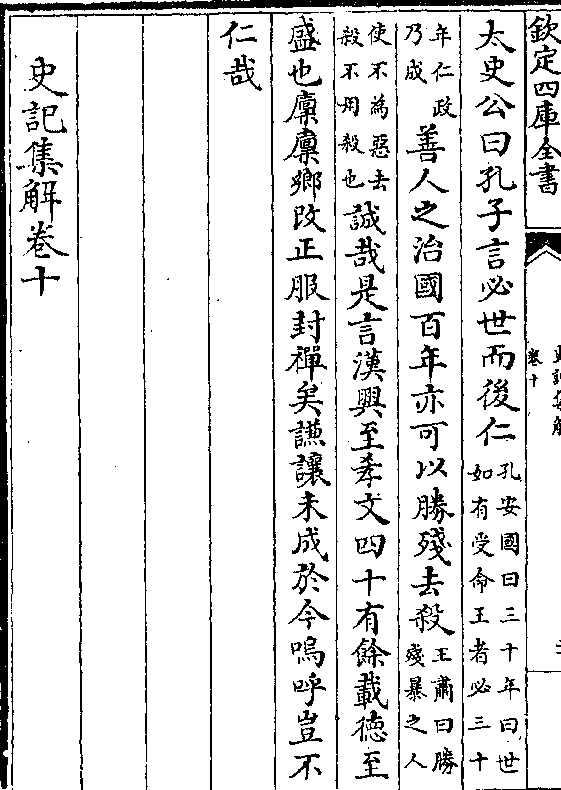 欽定四庫全書
卷十
太史公曰孔子言必世而後仁孔安國曰三十年曰世如有受命王者必三十
年仁政乃成善人之治國百年亦可以勝殘去殺王肅曰勝殘暴之人
使不為惡去殺不用殺也誠哉是言漢興至孝文四十有餘載德至
盛也廩廩鄉改正服封禪矣謙讓未成於今嗚呼豈不
仁哉
史記集解卷十